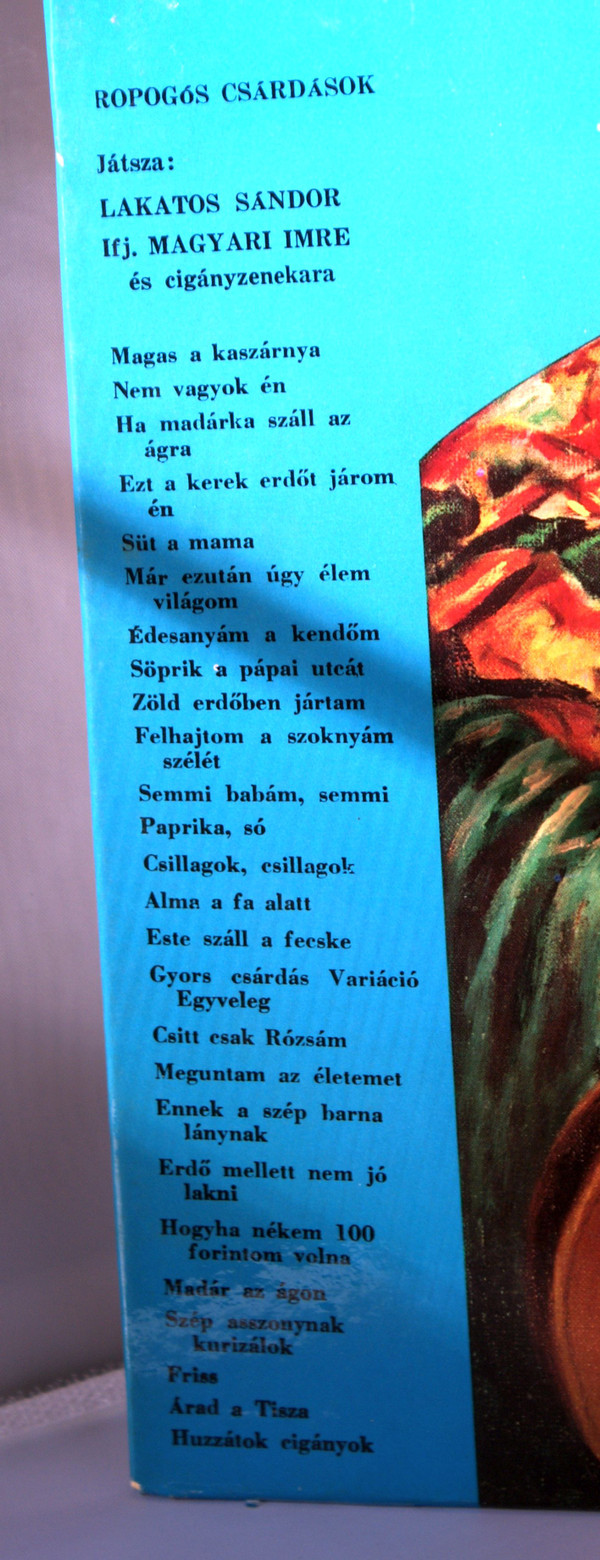 ROPOGÓS CSÁRDÁSOK
Játsza:
LAKATOS SÁNDOR
Ifj. MAGYARI IMRE
és cigányzenekara
Magas a kaszárnya
Nem vagyok én
Ha madárka száll az
ágra
Ezt a kerek erdőt járom
én
Süt a mama
Már ezután úgy élem
világom
Édesanyám a kendőm
Söprik a pápai utcát
Zöld erdőben jártam
Felhajtom a szoknyám
szélét
Semmi babám, semmi
Paprika, só
Csillagok, csillagok
Alma a fa alatt
Este száll a fecske
Gyors csárdás Variáció
Egyveleg
Csitt csak Rózsám
Meguntam az életemet
Ennek a szép barna
lánynak
Erdő mellett nem jó
lakni
Hogyha nékem 100
forintom volna
Madár az ágon
Szép asszonynak
kurizálok
Friss
Árad a Tisza
Huzzátok cigányok